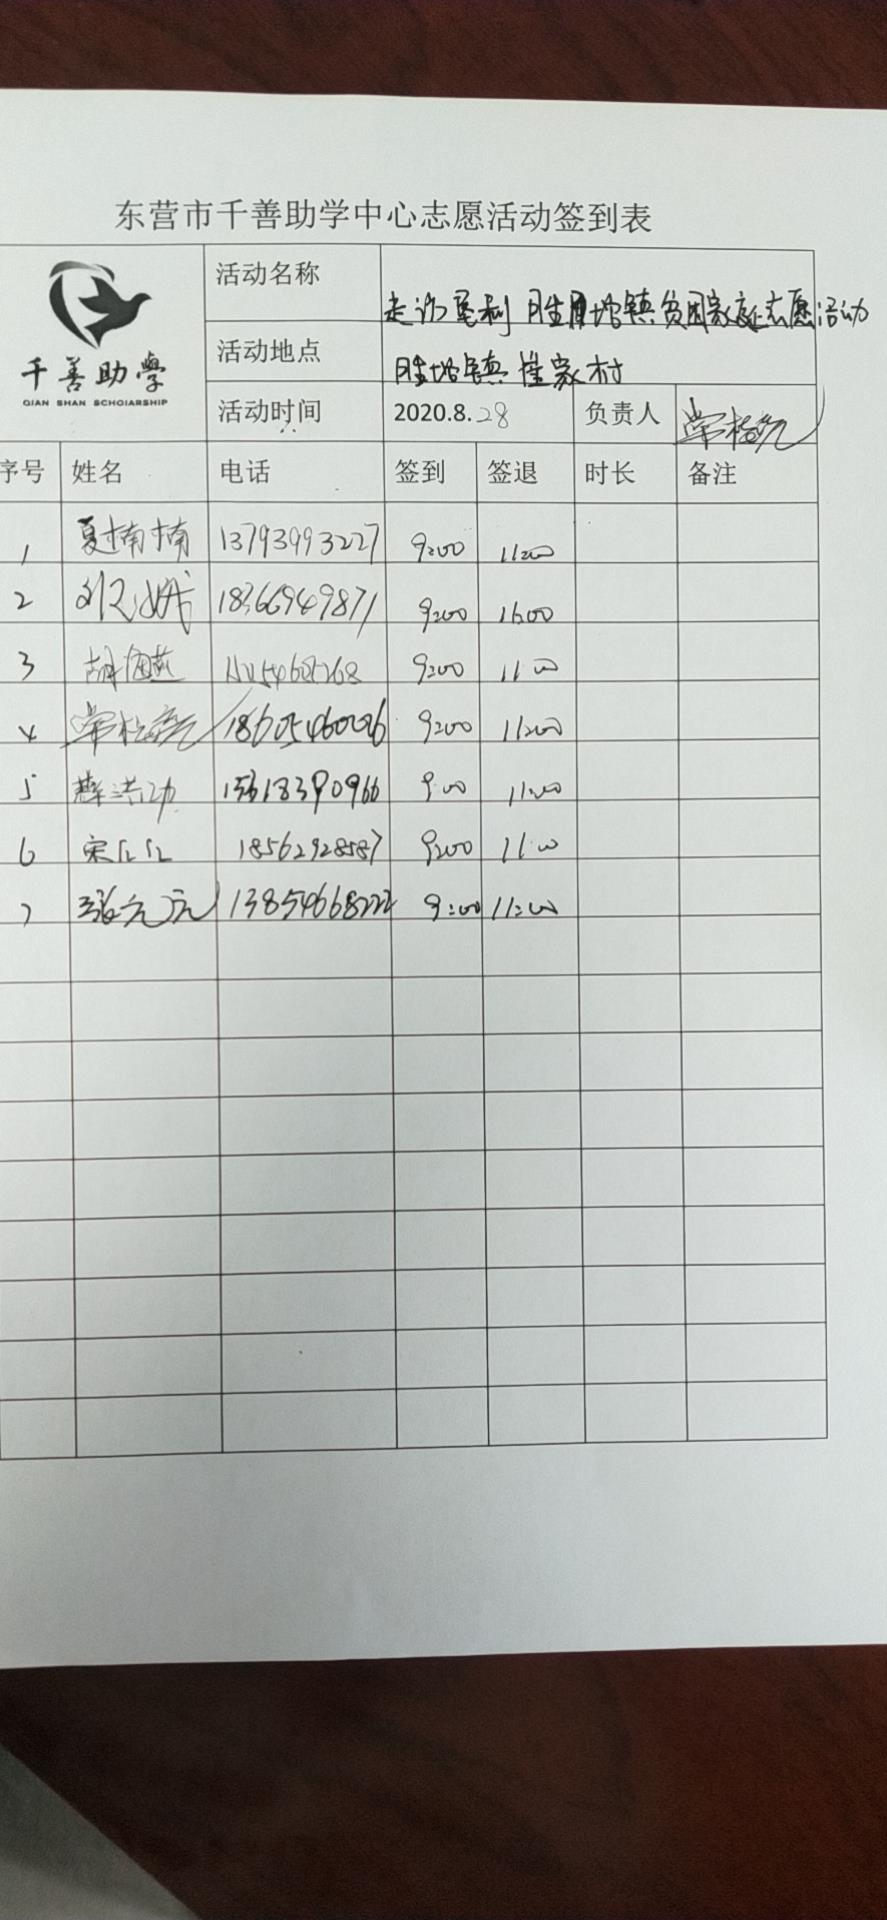 东营市千善助学中心志愿活动签到表
千善助學
QIAN SHAN SCHOIARSHIP
活动名称 走访垦利 胜坨镇贫困家庭志愿活动
活动地点 胜坨镇 崔家村
活动时间 2020.8.28 负责人
序号 姓名 电话 签到 签退 时长 备注
1 夏楠楠 13793993227 9:00 11:00
2 18366949871 9:00 11:00
3 胡海燕 9:00 11:00
4 18605460026 9:00 11:00
5 薛洪功 15618390966 9:00 11:00
6 宋 18562928587 9:00 11:00
7 张元元 13854668222 9:00 11:00